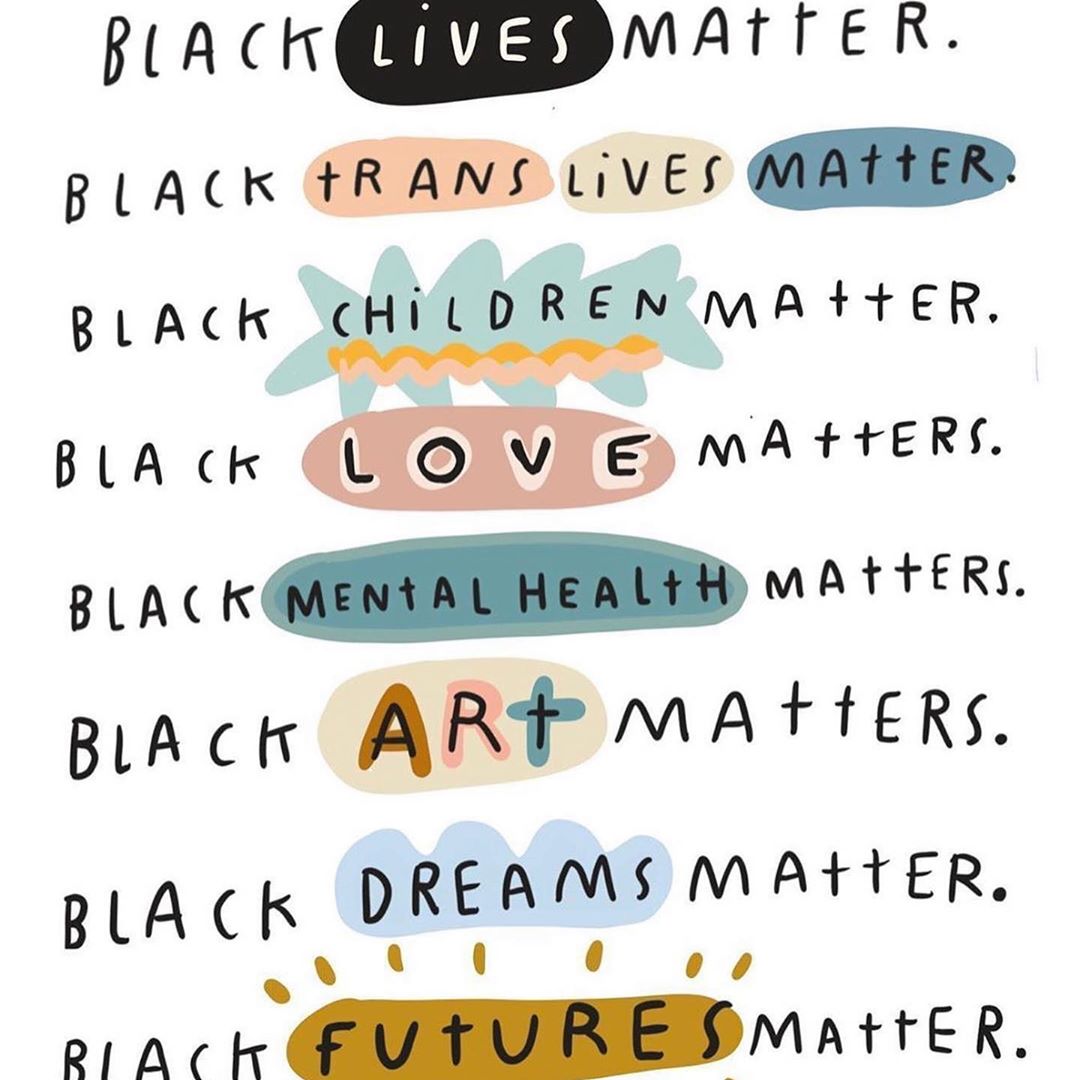 BLACK LiVES MAttER.
BLACK tRANS LiVES MAttER.
BLACK CHiLDREN MAttER.
BLACK LOVE MAttERS.
BLACK MENtAL HEALtH MAttERS.
BLACK ARt MAttERS.
BLACK DREAMS MAttER.
BLACK FUtURES MAttER.